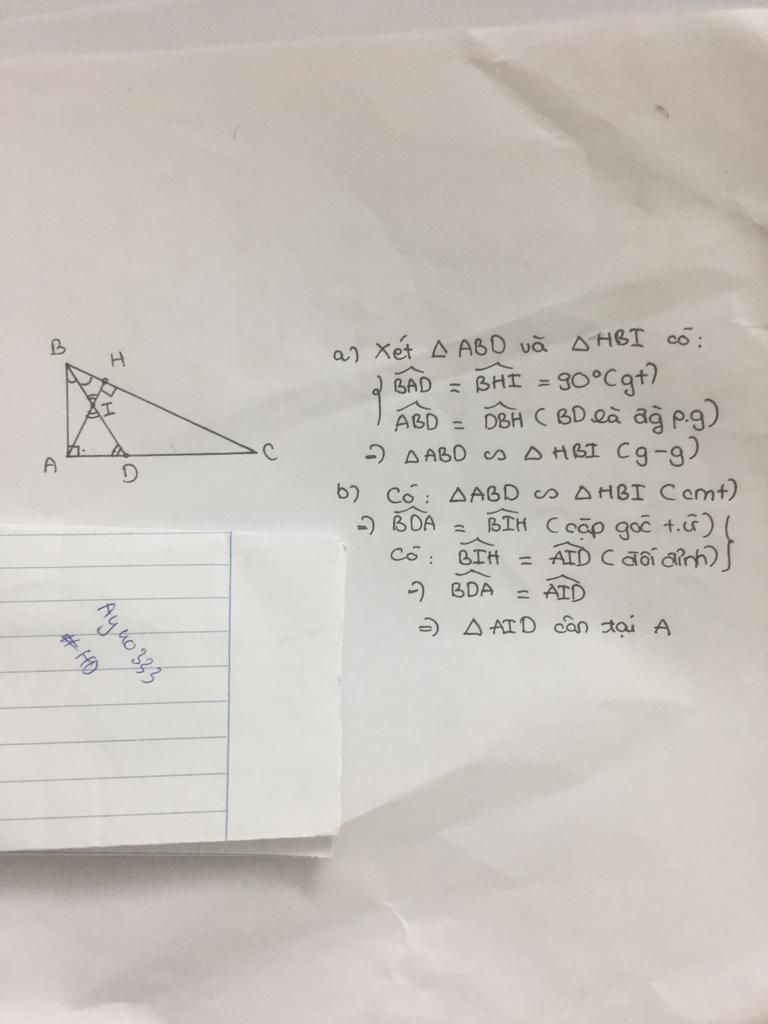 B
H
I
A
D
C
a) Xét △ ABD và △ HBI có:
BAD = BHI = 90° (gt)
ABD = DBH (BD là đg p.g)
=> △ ABD ∽ △ HBI (g-g)
b) Có: △ABD ∽ △HBI (cmt)
=> BDA = BIH (cặp góc t.ứ)
Có: BIH = AID (đối đỉnh)
=> BDA = AID
=> △ AID cân tại A
Ayno333
#HD